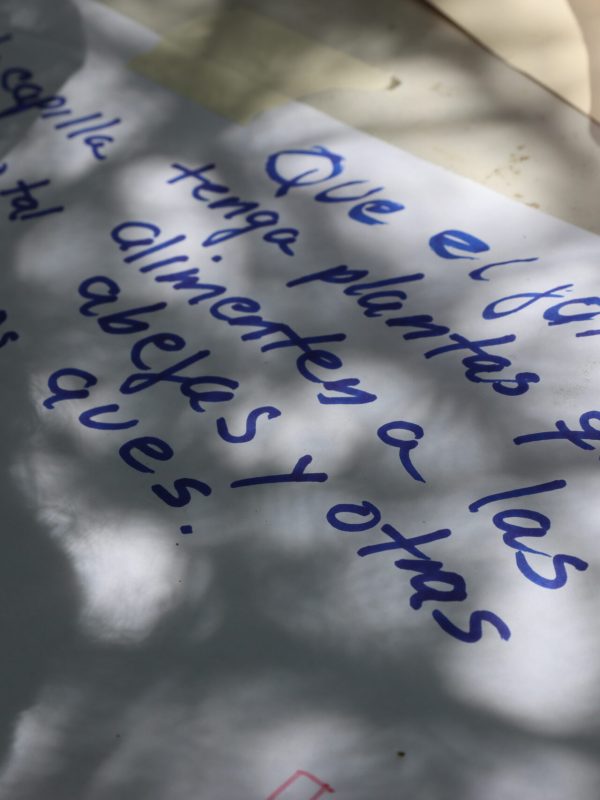 capilla
Que el
tenga plantas
alimenten a las
abejas y otras
aves.